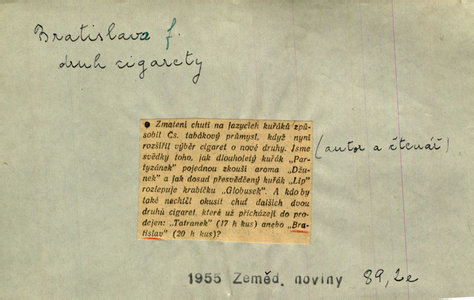 Bratislava f.
druh cigarety
● Zmatení chuti na jazycích kuřáků způ-
sobil Čs. tabákový průmysl, když nyní
rozšířil výběr cigaret o nové druhy. Jsme
svědky toho, jak dlouholetý kuřák „Par-
tyzánek" pojednou zkouší aroma „Džu-
nek" a jak dosud přesvědčený kuřák „Lip"
rozlepuje krabičku „Globusek". A kdo by
také nechtěl okusit chuť dalších dvou
druhů cigaret, které už přicházejí do pro-
dejen: „Tatranek" (17 h kus) anebo „Bra-
tislav" (20 h kus)?
(autor a čtenář)
1955 Zeměd. noviny 89, 2e